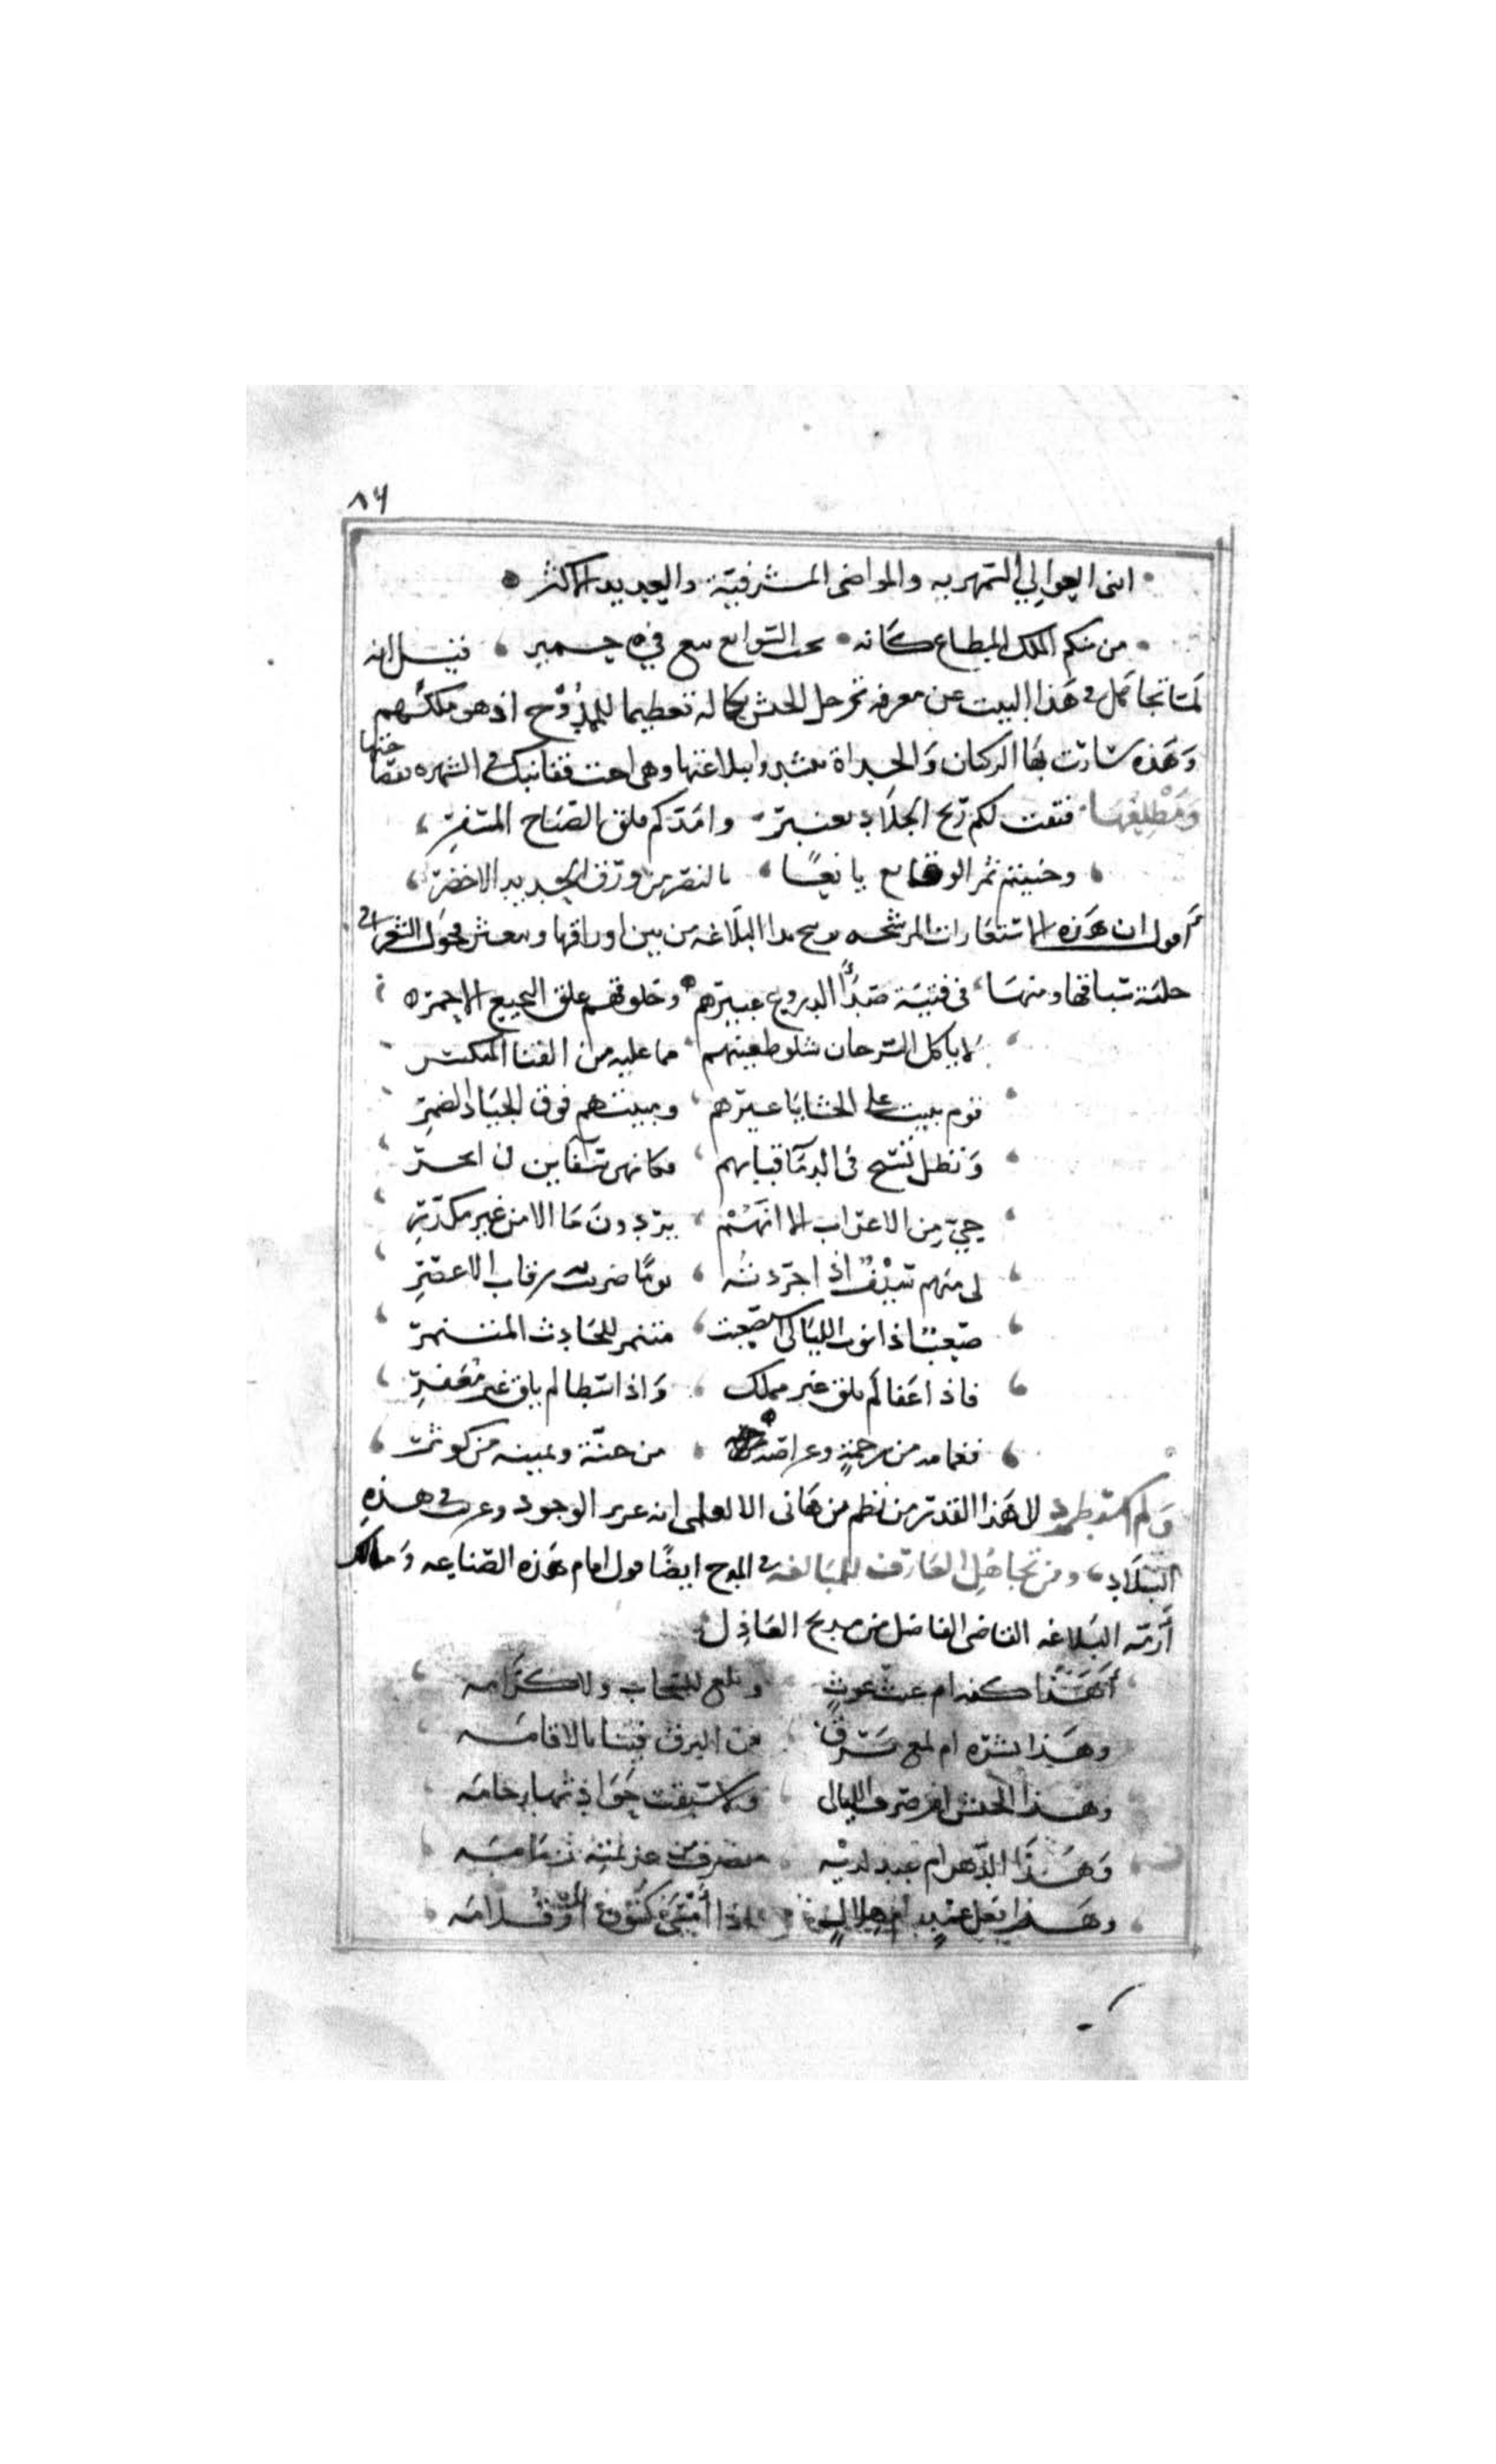 ٨٦
ابنى العوالي السمهريه والمواضى المشرفية والعديد الاكثر
من منكم الملك المطاع كانه تحت السوابغ تبع في حمير فقيل انه
لما تجاهل في هذا البيت عن معرفة ترجل الجيش بكماله تعظيما للممدوح اذ هو ملكهم
وهذه سارت بها الركبان والحداة بلاغتها وهي اخت قفانبك في الشهره بفصاحتها
ومطلعها فتقت لكم ريح الجلاد بعنبر وامدكم فلق الصباح المسفر
وجنيتم ثمر الوقائع يانعًا بالنصر من ورق الحديد الاخضر
أقول ان هذه الاستعارات المرشحه البلاغه من بين اوراقها فحول الشعر الى
حلبة سباقها ومنها في فتية صدأ الدروع عبيرهم وخلوقهم علق النجيع الاحمر
لا ياكل السرحان شلو طعينهم مما عليه من القنا المتكسر
قوم يبيت على الحشايا غيرهم ومبيتهم فوق الجياد الضمر
وتظل تسبح في الدما قبابهم فكانهن سفاين في ابحر
حي من الاعراب الا انهم يردون ما الامن غير مكدر
لي منهم سيف اذا جردته يومًا ضربت به رقاب الاعصر
صعب اذا نوب الليالي استصعبت متنمر للحادث المتنمر
فاذا عفا لم يلق غير مملك واذا سطا لم يلق غير معفر
فغمامه من رحمة وعراصه من جنة ويمينه من كوثر
ولم استطرد الى هذا القدر من نظم بن هانى الا لعلمي انه عزيز الوجود وغريب في هذه
البلاد ومن تجاهل العارف للمبالغه في المدح ايضًا قول امام هذه الصناعه ومالك
أزمة البلاغه القاضى الفاضل من مديح العادل
أهذا كفه ام غيث غوث ولا بلغ السحاب ولا كرامه
وهذا بشره ام لمع برق ومن للبرق فينا بالاقامه
وهذا الجيش ام صرف الليالي ولا سبقت حوادثها زحامه
وهذا الدهر ام عبد لديه يصرف عن عزيمته زمامه
وهذا نعل غمد ام هلال اذا أمسى كنون أو قلامه